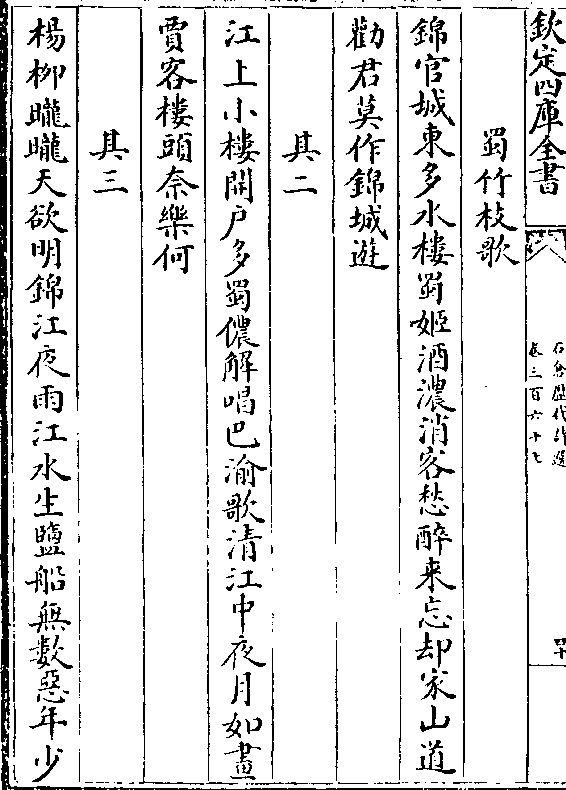 欽定四庫全書
石倉歷代詩選
卷三百六十七
四十
蜀竹枝歌
錦官城東多水樓蜀姬酒濃消客愁醉来忘却家山道
勸君莫作錦城遊
其二
江上小樓開户多蜀儂解唱巴渝歌清江中夜月如晝
賈客樓頭奈樂何
其三
楊栁曨曨天欲明錦江夜雨江水生鹽船無數惡年少